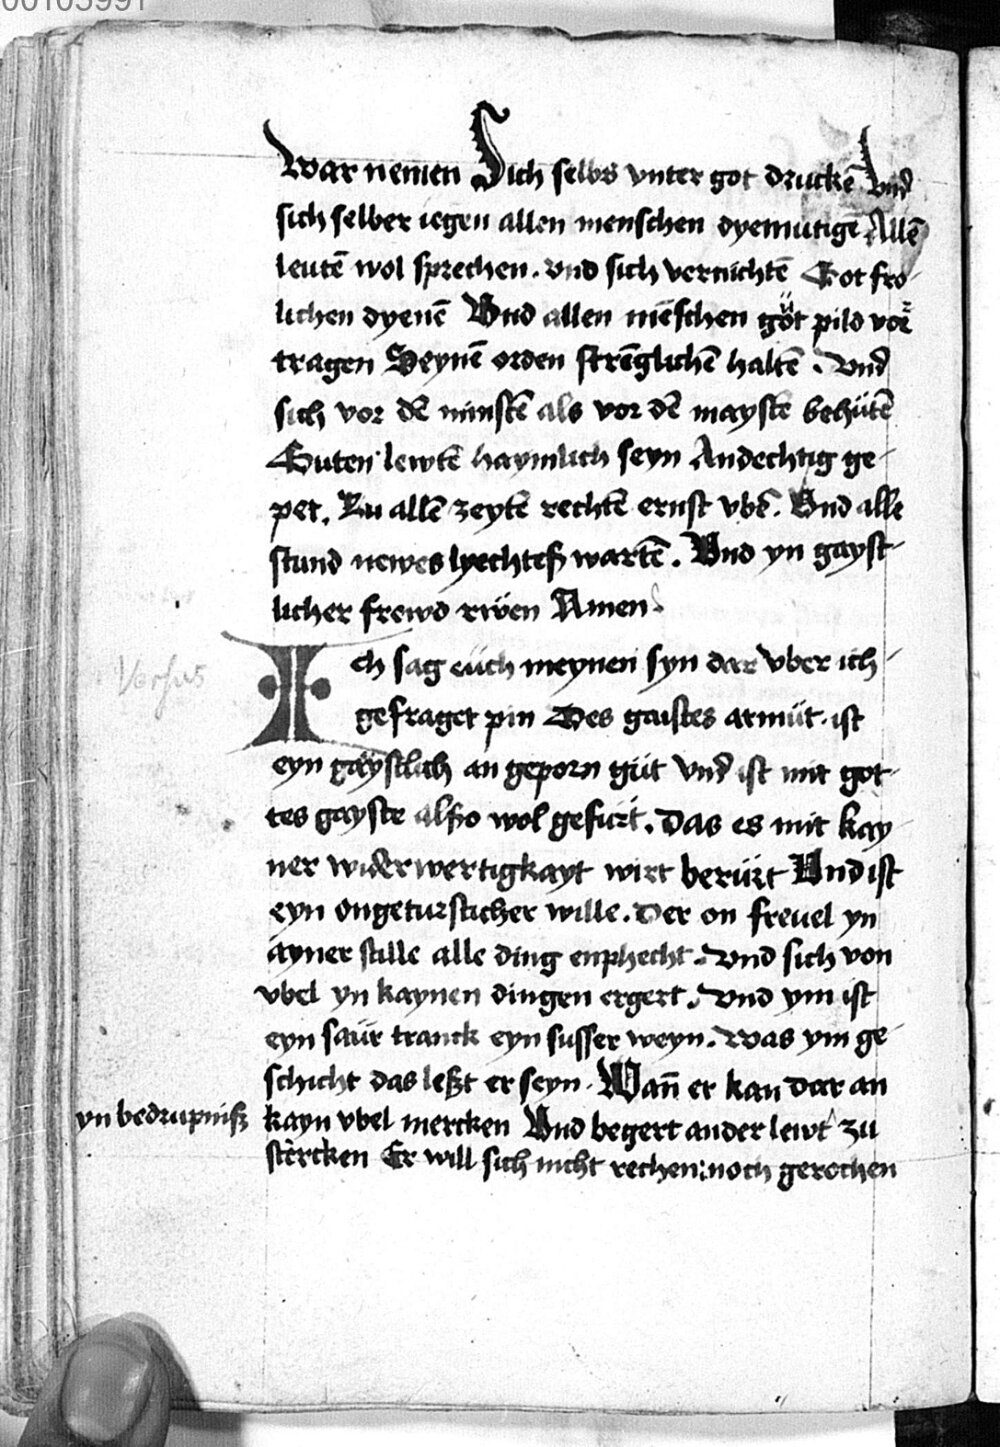 00103991
War nemen Sich selbs vnter got druckē Vnd
sich selber iegen allen menschen dyemutigē Allē
leutē wol sprechen. vnd sich vernichtē Got fro-
lichen dyenē Vnd allen mēschen güt pild vor
tragen Seynē orden strēglichē haltē. Vnd
sich vor dē minstē als vor dē maystē behütē
Guten lewtē haymlich seyn Andechtig ge-
pet. Zu allē zeytē rechtē ernst vbē. Vnd alle
stund newes lyechtes wartē. Vnd yn gayst-
licher frewd rwen Amen
Ich sag euch meynen syn dar vber ich
gefraget pin Des gaistes armüt. ist
eyn gaystlich an geporn güt vnd ist mit got-
tes gayste also wol gefürt. Das es mit kay-
ner widerwertigkayt wirt berürt Vnd ist
eyn ongeturstlicher wille. Der on freuel yn
ayner stille alle ding enphecht. Vnd sich von
vbel yn kaynen dingen ergert. Vnd ym ist
eyn saür tranck eyn susser weyn. Was ym ge-
schicht das leßt er seyn. Wañ er kan dar an
kayn vbel mercken Vnd begert ander lewt zu
stercken Er will sich nicht rechen: noch gerochen
Versus
yn bedrupniß